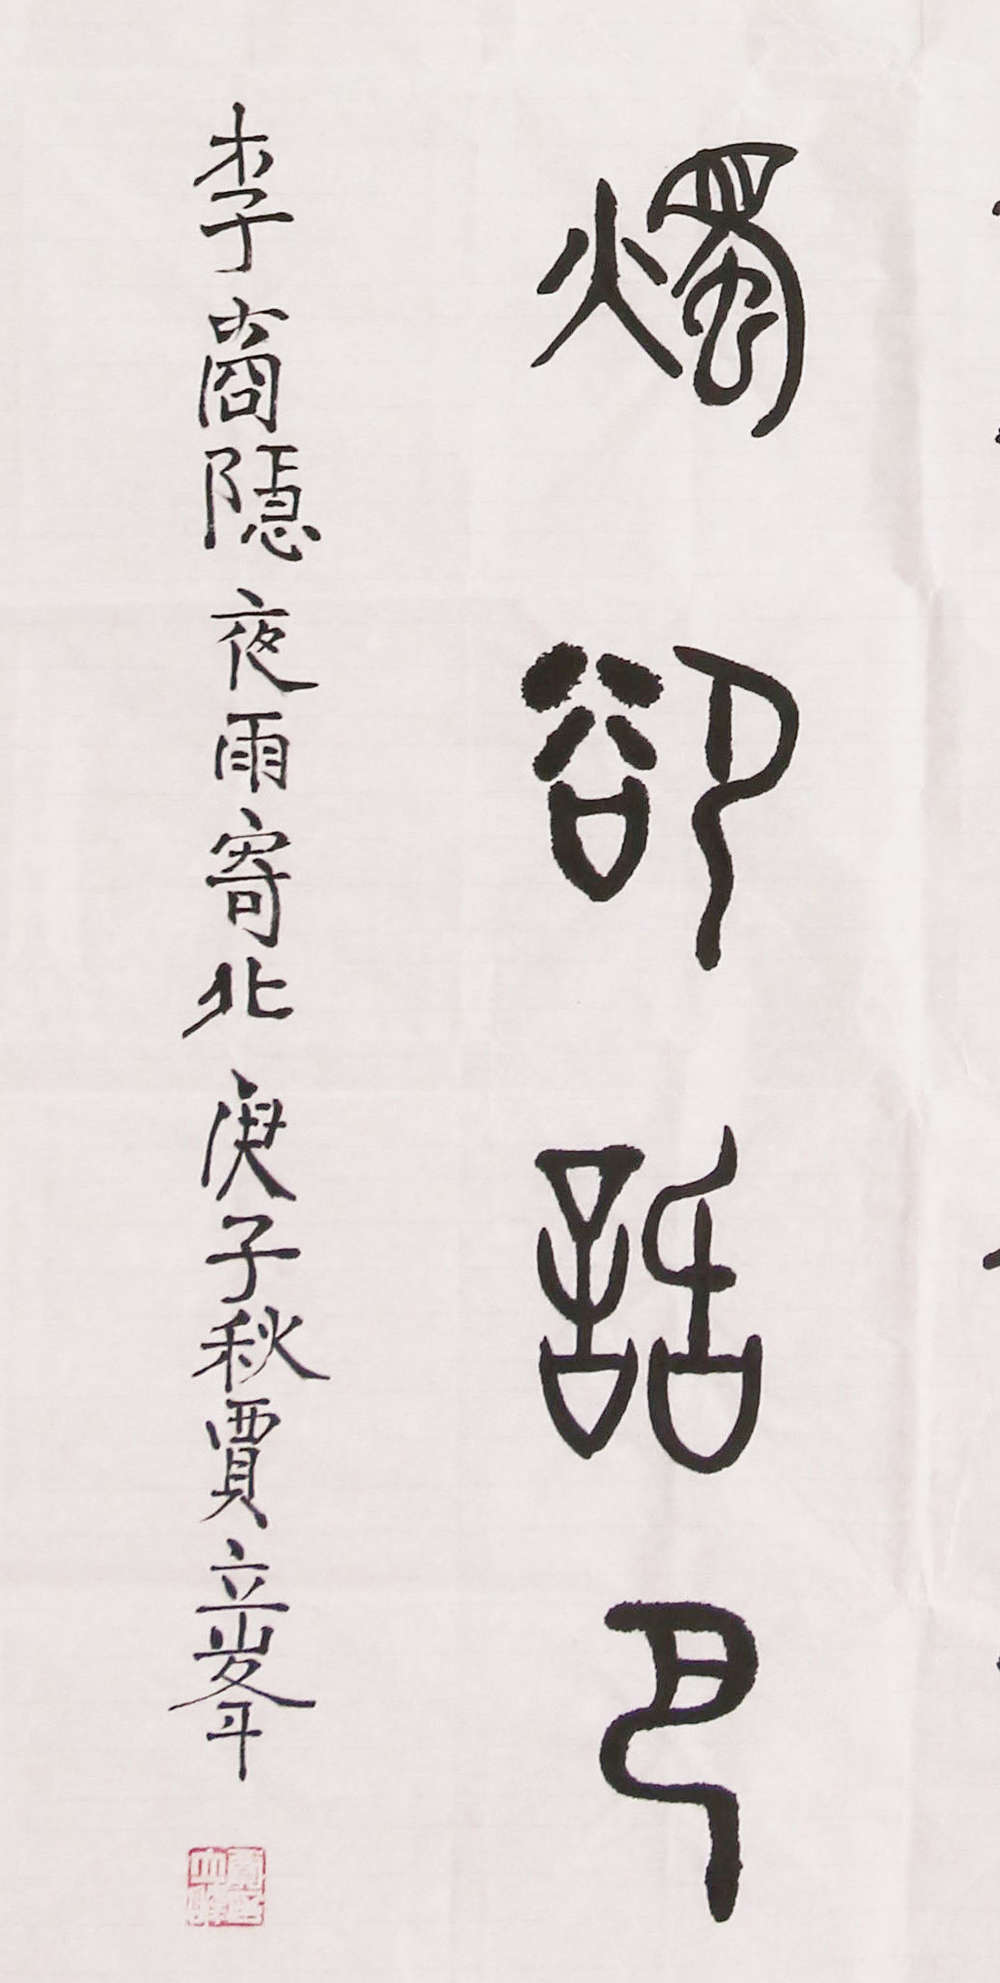 燭卻話巴
李商隱 夜雨寄北 庚子秋賈立峯